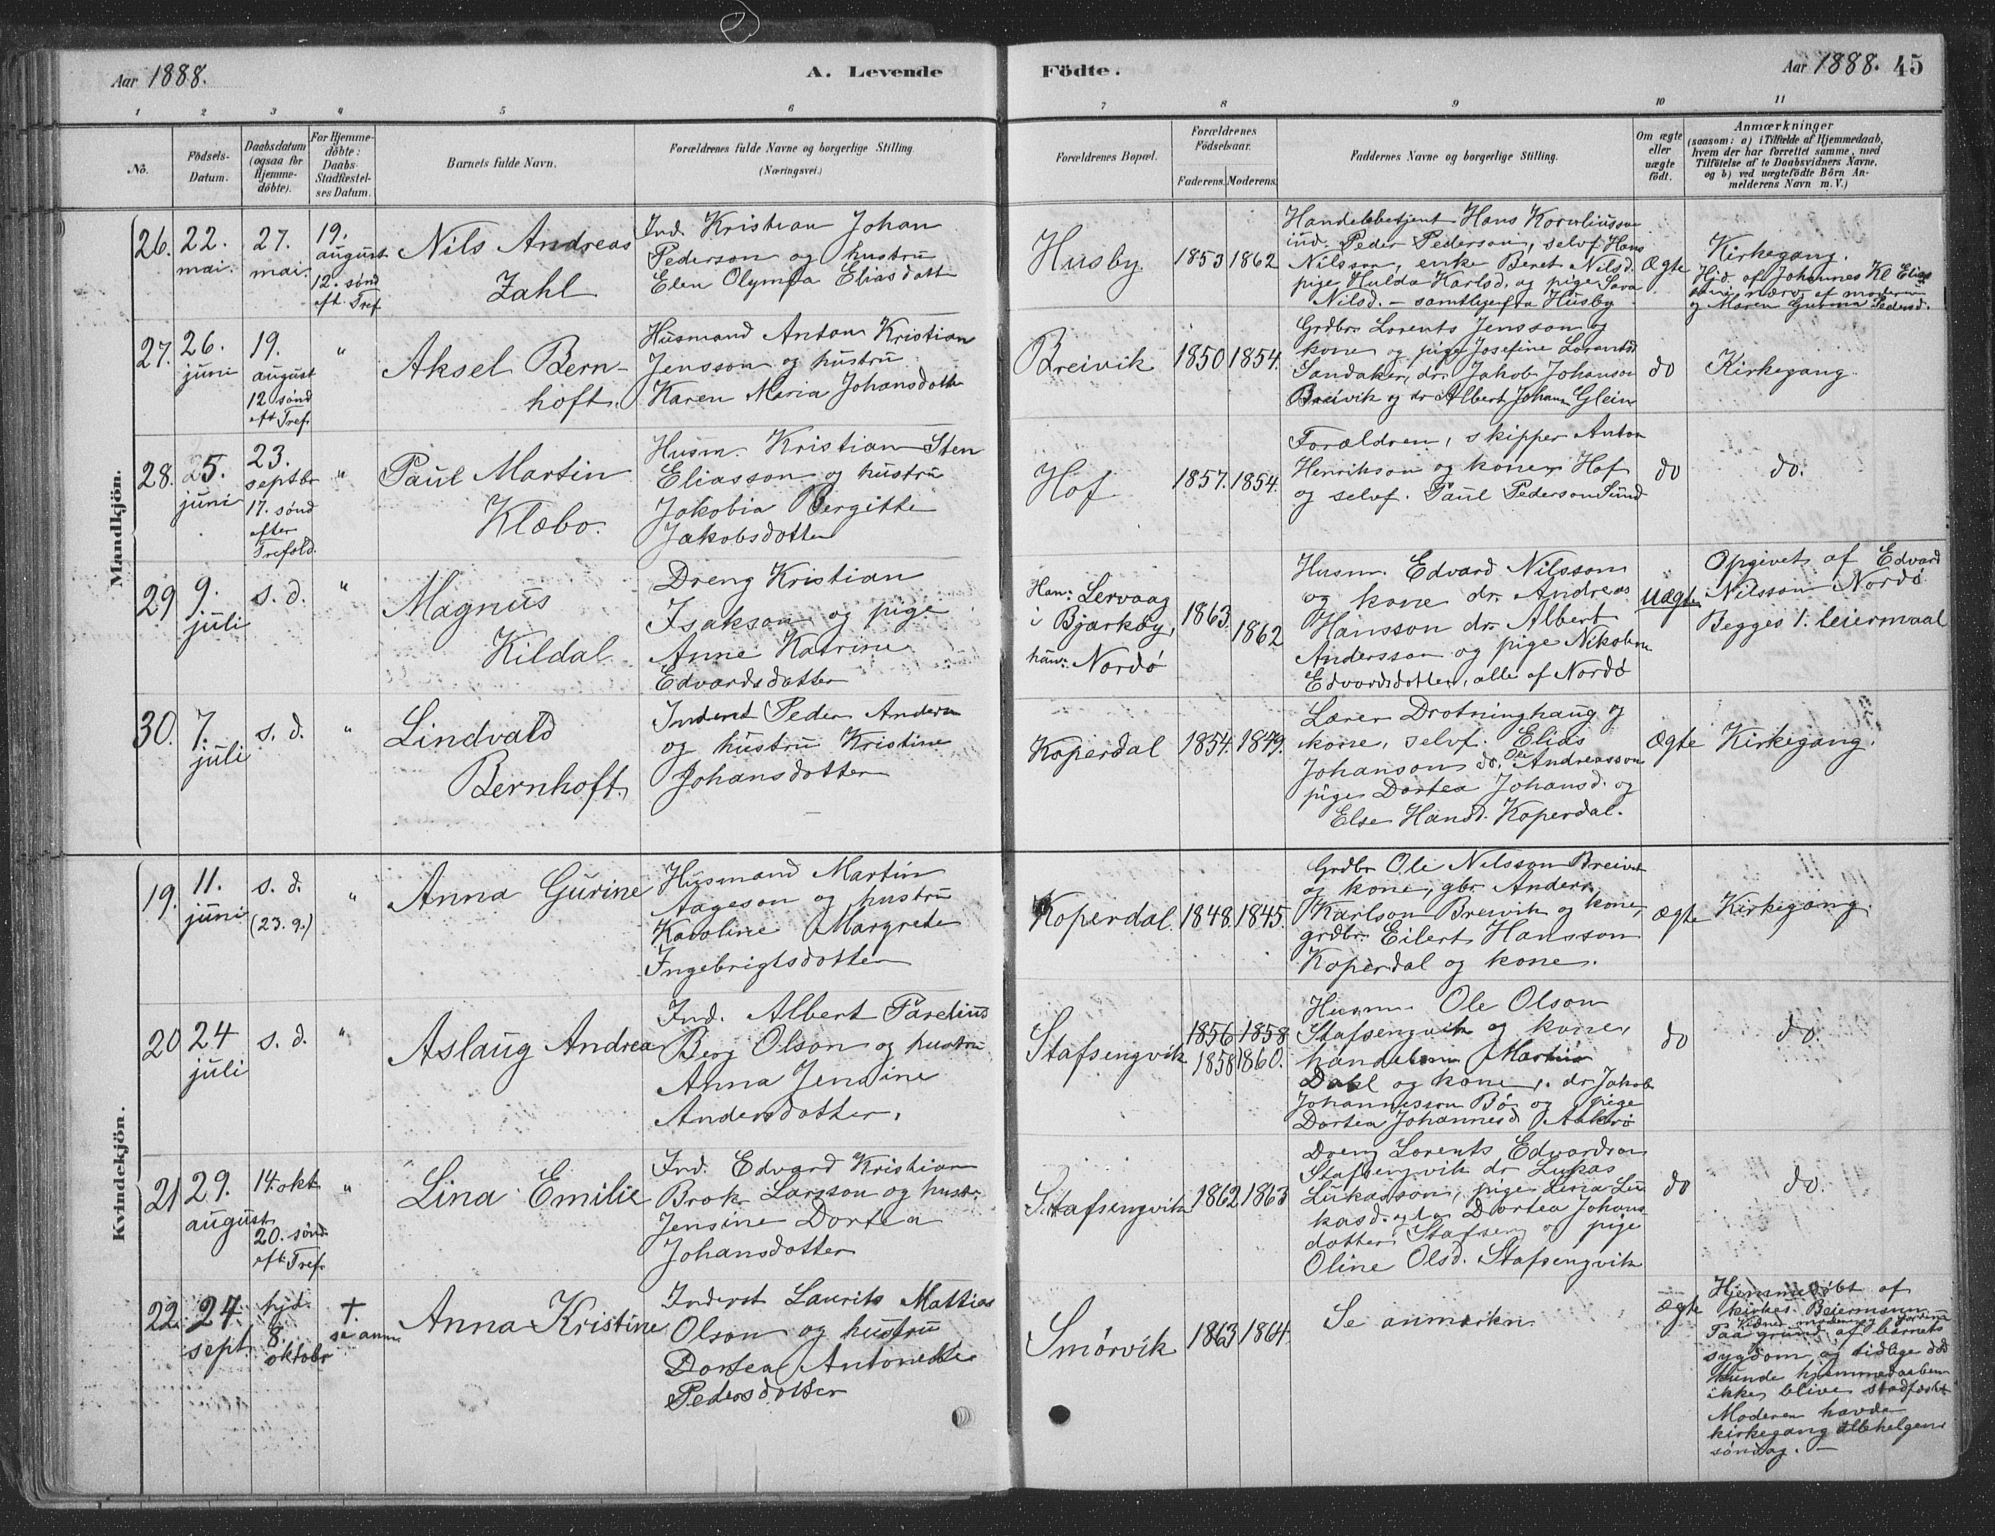 Aar 1888.
A. Levende
Födte.
Aar 1888. 45
1 2 3 4 5 6 7 8 9 10 11
No.
Födsels-
Datum.
Daabsdatum
(ogsaa for
Hjemme-
döbte).
For Hjemme-
döbte:
Daabs-
Stadfæstel-
ses Datum.
Barnets fulde Navn.
Forældrenes fulde Navne og borgerlige Stilling.
(Næringsvei.)
Forældrenes Bopæl.
Forældrenes
Födselsaar.
Faderens. Moderens.
Faddernes Navne og borgerlige Stilling.
Om ægte
eller
uægte
født.
Anmærkninger
(saasom: a) i Tilfælde af Hjemmedaab,
hvem der har forrettet samme, med
Tilföielse af to Daabsvidners Navne,
og b) ved uægtefödte Börn An-
melderens Navn m. V.)
Mandkjön.
26.
22.
mai.
27.
mai.
19.
august
12. sønd
eft. Tref
Nils Andreas
Zahl
Ind. Kristian Johan
Pederson og hustru
Elen Olympa Eliasdatt
Husby
1853 1862
Handelsbetjent Hans Korneliusson
ind. Peder Pederson, selvf. Hans
Nilsson, enke Beret Nilsd.
pige Hulda Karlsd. og pige
Nilsd. – samtlige fra Husby
Ægte
Kirkegang.
Hjd. af Johannes Kl Elias
og Maren Pedersd.
27.
26.
juni
19.
august
12 sønd
eft Tref.
"
Aksel Bern-
hoft.
Husmand Anton Kristian
Jensson og hustru
Karen Maria Johansdott
Breivik
1850 1854.
Grdbr. Lorents Jensson og
kone og pige Josefine Lorentsd
Sandaker, dr. Jakob Johanson
Breivik og dr Albert Johans Glein
do
Kirkegang.
28.
25.
juni
23.
septbr
17. sønd
efter
Trefold.
"
Paul Martin
Klæbo.
Husm. Kristian Sten
Eliasson og hustru
Jakobia Bergitte
Jakobsdotter
Hof
1857. 1854.
Forældren, skipper Anton
Henrikson og kone, Hof
og selvf. Paul Pederson Sund
do
do.
29
9.
juli
s. d.
"
Magnus
Kildal
Dreng Kristian
Isakson og pige
Anne Katrine
Edvardsdotter
Han: Lervaag
i Bjarkøy,
hun: Nordø
1863.
1862
Husm. Edvard Nilsson
og kone dr. Andreas
Hansson dr. Albert
Andersson og pige Nikoline
Edvardsdotter, alle af Nordø
Uægte
Opgivet af Edvard
Nilsson Nordø
Begges 1. leiermaal
30.
7.
juli
s. d.
"
Lindvald
Bernhoft.
Inderst Peder Anders
og hustru Kristine
Johansdotter
Koperdal
1854. 1849.
Lærer Drotninghaug og
kone, selvf. Elias
Johanson do. Ole Andreasson
pige Dortea Johansd. og
Else Hansd. Koperdal.
Ægte
Kirkegang.
Kvindekjön.
19.
11.
juni
s. d.
(23. 9.)
"
Anna Gurine
Husmand Martin
Aageson og hustru
Karoline Margrete
Ingebrigtsdotter
Koperdal.
1848. 1845.
Grdbr Ole Nilsson Breivik
og kone, gbr Anders
Karlson Breivik og kone,
grdbr. Eilert Hansson
Koperdal og kone.
Ægte
Kirkegang.
20
24
juli
s. d.
"
Aslaug Andrea
Ind. Albert Parelius
Berg Olson og hustru
Anna Jensine
Andersdotter.
Stafsengvik
1856 1858
1858 1860.
Husm Ole Olson
Stafsengvik og kone,
handelsm Martin
Dahl og kone, dr Jakob
Johannesson Bø og pige
Dortea Johannesd
do
do.
21
29.
august
14. okt
20. sønd.
eft. Tref.
"
Lina Emilie
Ind. Edvard Kristian
Brok Larsson og hust.
Jensine Dortea
Johansdotter
Stafsengvik
1862 1863
Dreng Lorents Edvardson
Stafsengvik dr Lukas
Lukasson, pige Lina Lu
kasd. og Dortea Johans
dotter Stafseng og pige
Oline Olsd. Stafsengvik
do
do.
22.
24.
sept
hjd.
8.
oktobr
†.
se anm
Anna Kristine
Inderst Laurits Mattias
Olson og hustru
Dortea Antonette
Pedersdotter
Smørvik
1863 1864.
Se anmærkn
Ægte
Hjemmedøbt af
Paa grund af barnets
sygdom og tidlige død
kunde hjemmedaaben
ikke blive stadfæstet
Moderen havde
kirkegang allehelgens
søndag. –